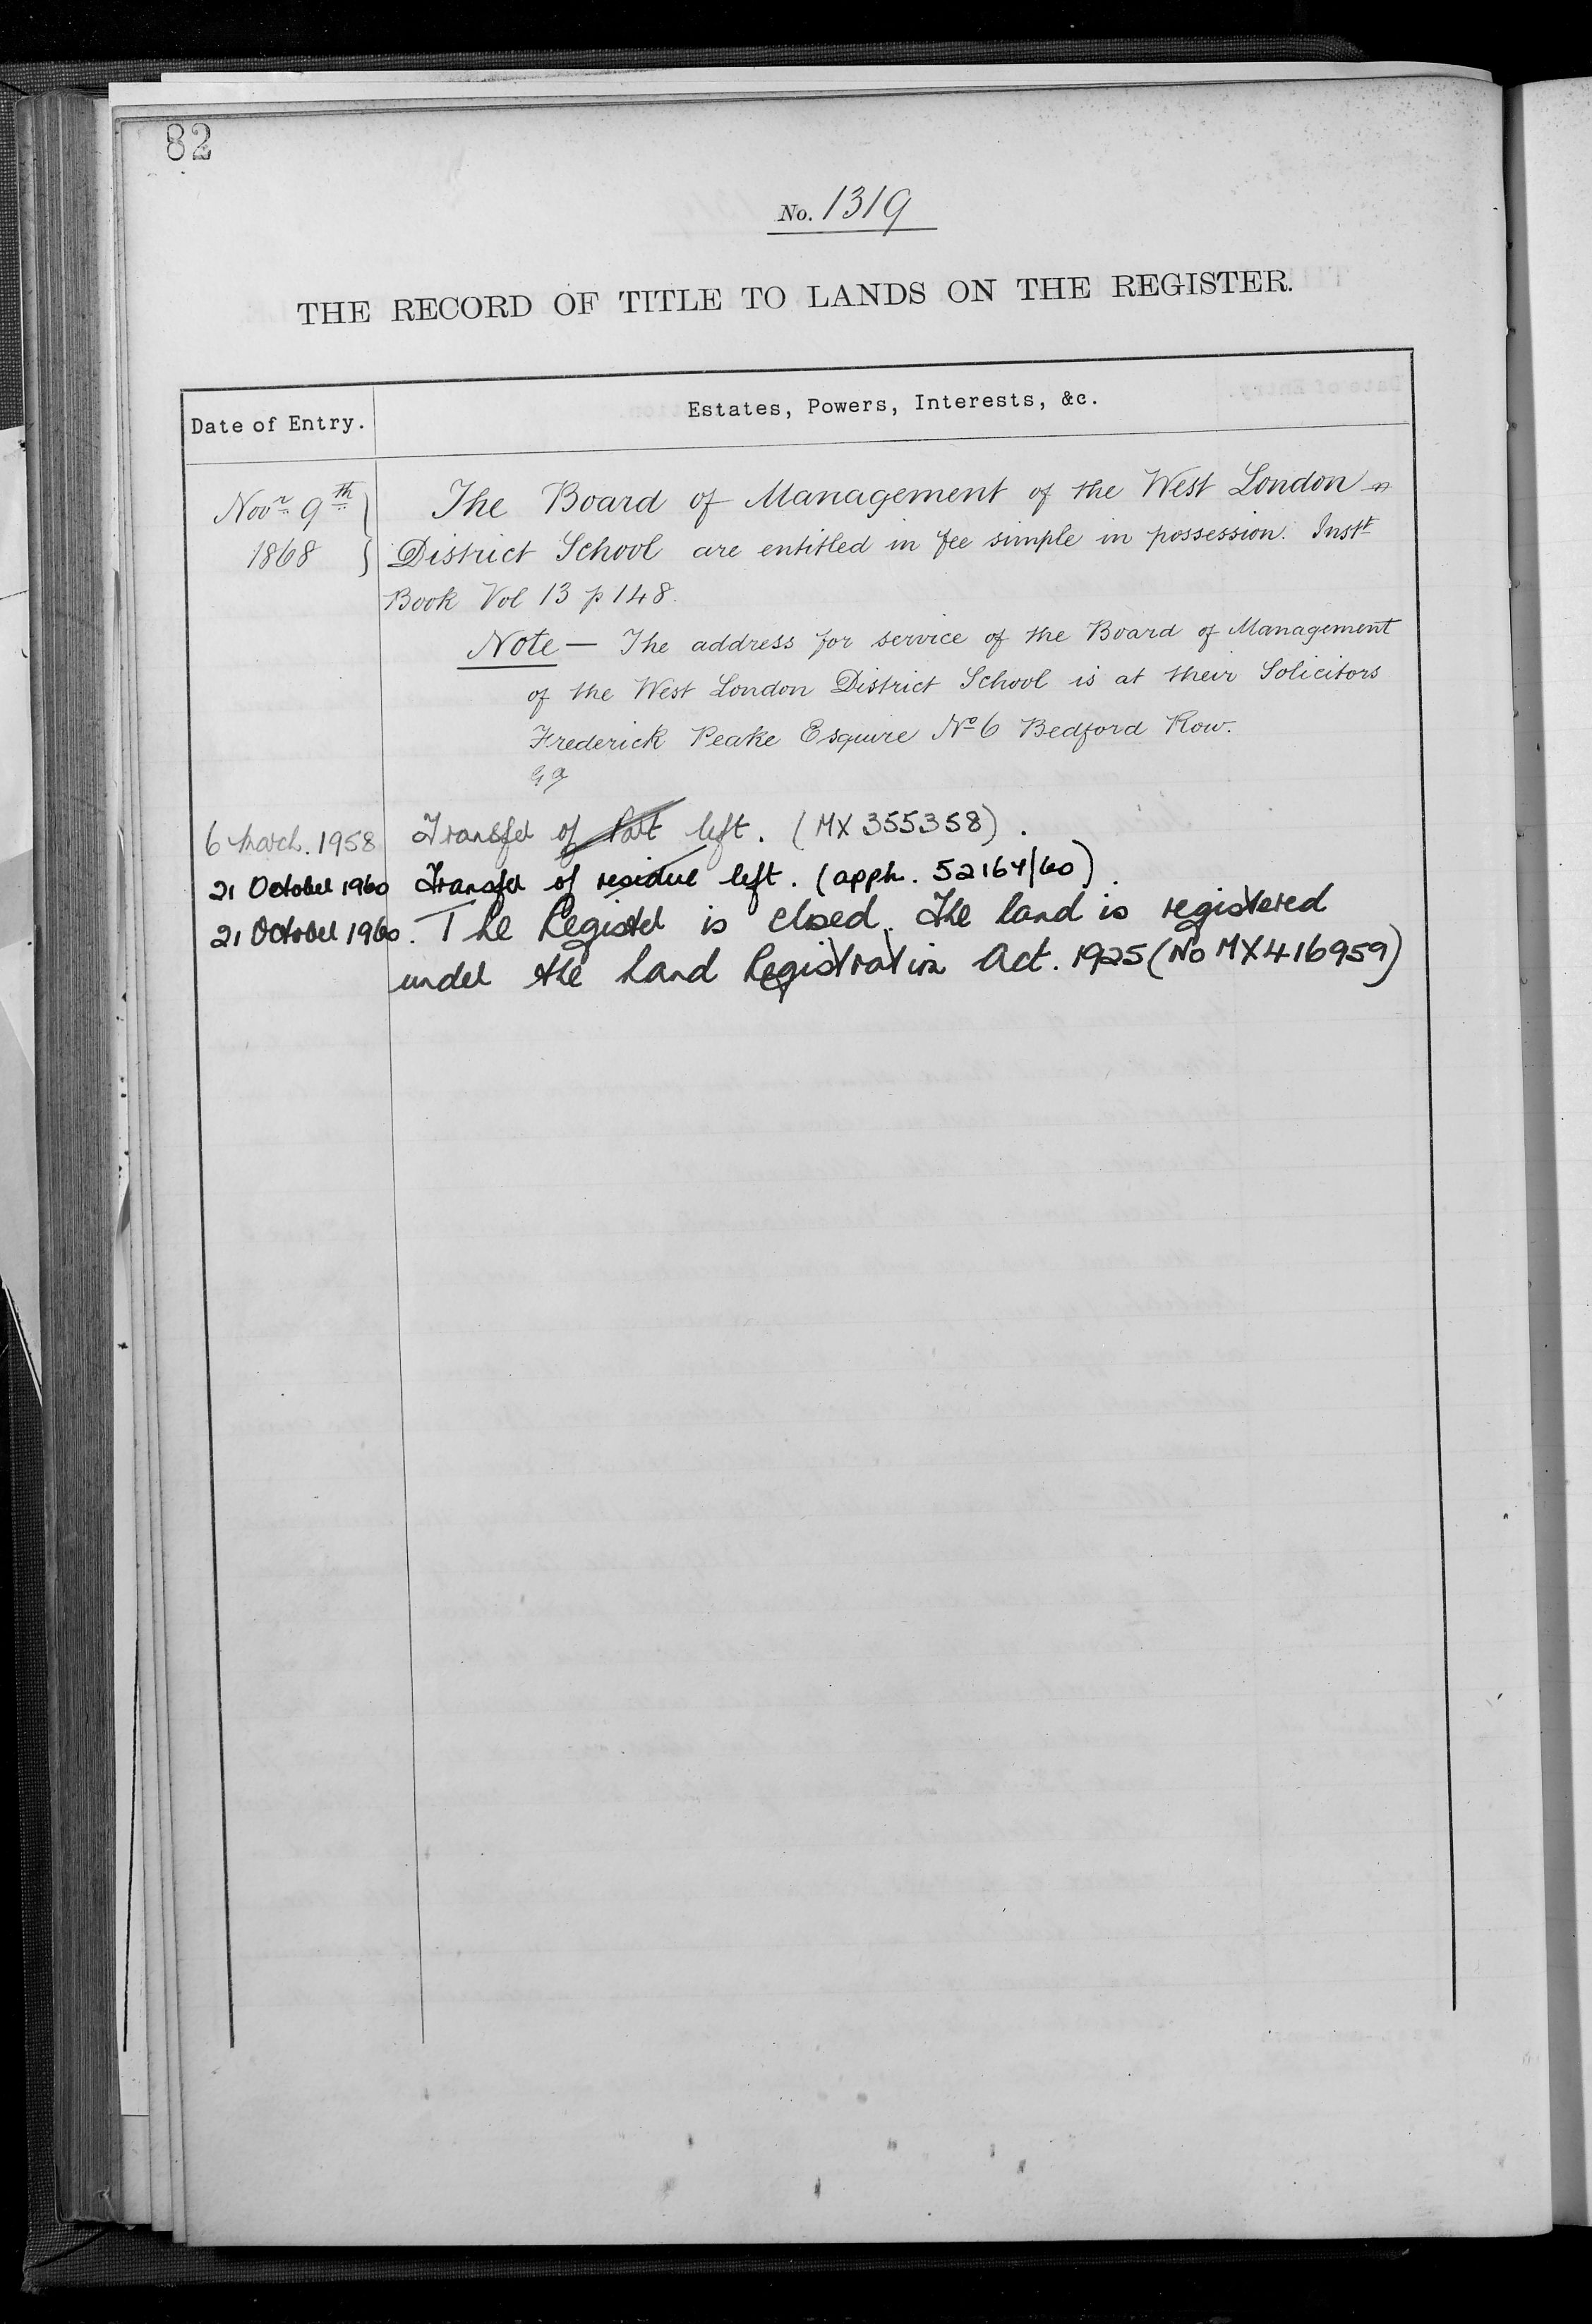 82
No. 1319
THE RECORD OF TITLE TO LANDS ON THE REGISTER.
Date of Entry.
Estates, Powers, Interests, &c.
Novr 9th
1868
The Board of Management of the West London
District School are entitled in fee simple in possession. Instt
Book Vol 13 p 148.
Note — The address for service of the Board of Management
of the West London District School is at their Solicitors
Frederick Peake Esquire No 6 Bedford Row.
6 March. 1958 Transfer of Part left. (MX 355358).
21 October 1960 Transfer of residue left. (appln. 52164/60).
21 October 1960. The Register is closed. The land is registered
under the Land Registration Act. 1925 (No MX416959)